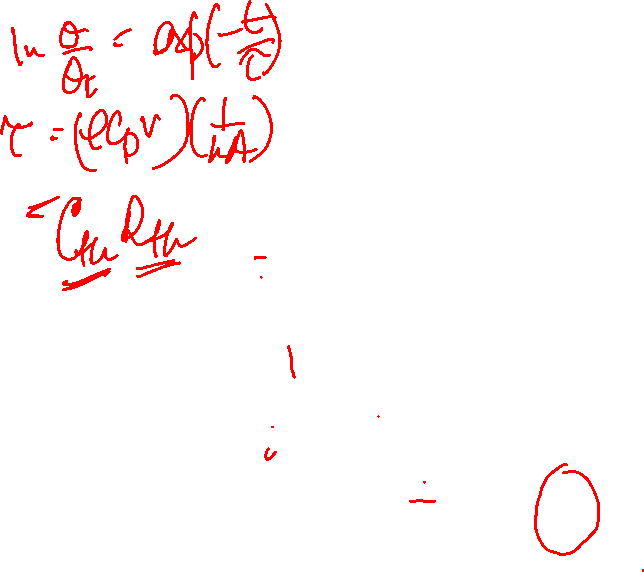 ln θ/θi = exp(-t/τ)
τ = (ρCpV)(1/hA)
= Cth Rth